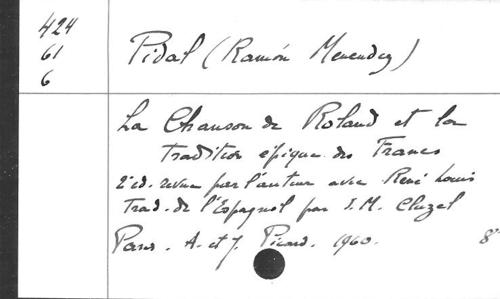 424
61
6
Pidal (Ramón Menendez)
La Chanson de Roland et la
tradition épique des Francs
2e éd. revue par l'auteur avec René Louis
Trad. de l'Espagnol par I.M. Cluzel
Paris. A. et J. Picard. 1960. 8°